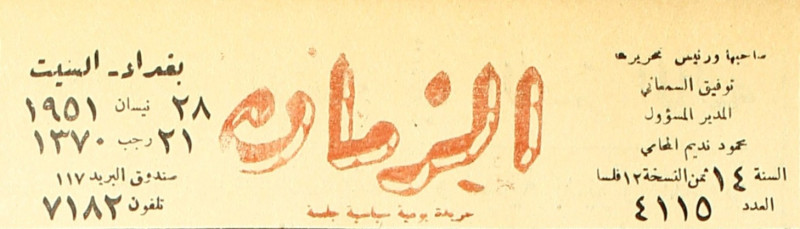 صاحبها ورئيس تحريرها
توفيق السمعاني
المدير المسؤول
محمود نديم المحامي
السنة ١٤ ثمن النسخة ١٢ فلسا
العدد ٤١١٥
الزمان
جريدة يومية سياسية
بغداد ـ السبت
٢٨ نيسان ١٩٥١
٢١ رجب ١٣٧٠
صندوق البريد ١١٧
تلفون ٧١٨٢